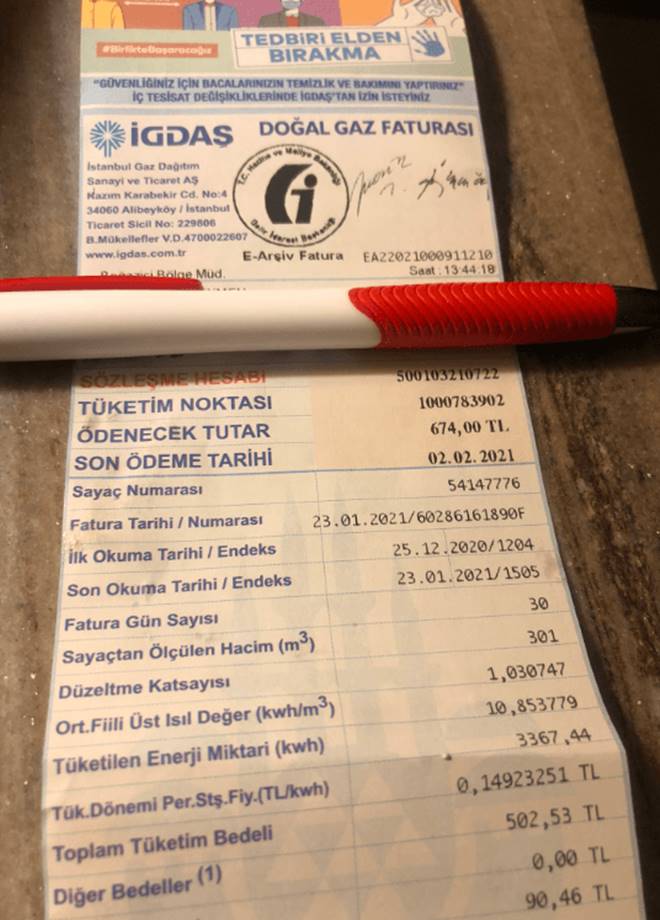 #BirlikteBaşaracağız
TEDBİRİ ELDEN
BIRAKMA
"GÜVENLİĞİNİZ İÇİN BACALARINIZIN TEMİZLİK VE BAKIMINI YAPTIRINIZ"
İÇ TESİSAT DEĞİŞİKLİKLERİNDE İGDAŞ'TAN İZİN İSTEYİNİZ
İGDAŞ DOĞAL GAZ FATURASI
İstanbul Gaz Dağıtım
Sanayi ve Ticaret AŞ
Kazım Karabekir Cd. No:4
34060 Alibeyköy / İstanbul
Ticaret Sicil No: 229806
B.Mükellefler V.D.4700022607
www.igdas.com.tr
T.C. Hazine ve Maliye Bakanlığı
Gelir İdaresi Başkanlığı
E-Arşiv Fatura EA22021000911210
Boğaziçi Bölge Müd. Saat : 13:44:18
SÖZLEŞME HESABI 500103210722
TÜKETİM NOKTASI 1000783902
ÖDENECEK TUTAR 674,00 TL
SON ÖDEME TARİHİ 02.02.2021
Sayaç Numarası 54147776
Fatura Tarihi / Numarası 23.01.2021/60286161890F
İlk Okuma Tarihi / Endeks 25.12.2020/1204
Son Okuma Tarihi / Endeks 23.01.2021/1505
Fatura Gün Sayısı 30
Sayaçtan Ölçülen Hacim (m³) 301
Düzeltme Katsayısı 1,030747
Ort.Fiili Üst Isıl Değer (kwh/m³) 10,853779
Tüketilen Enerji Miktari (kwh) 3367,44
Tük.Dönemi Per.Stş.Fiy.(TL/kwh) 0,14923251 TL
Toplam Tüketim Bedeli 502,53 TL
Diğer Bedeller (1) 0,00 TL
90,46 TL